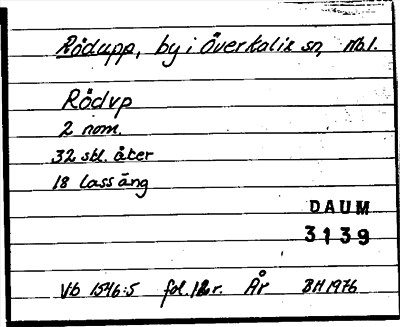 Rödupp, by i Överkalix sn, Nb.l.
Rödvp
2 nom.
32 skl. åker
18 lass äng
DAUM
3139
Vb 1546:5 fol. r. År BH 1976